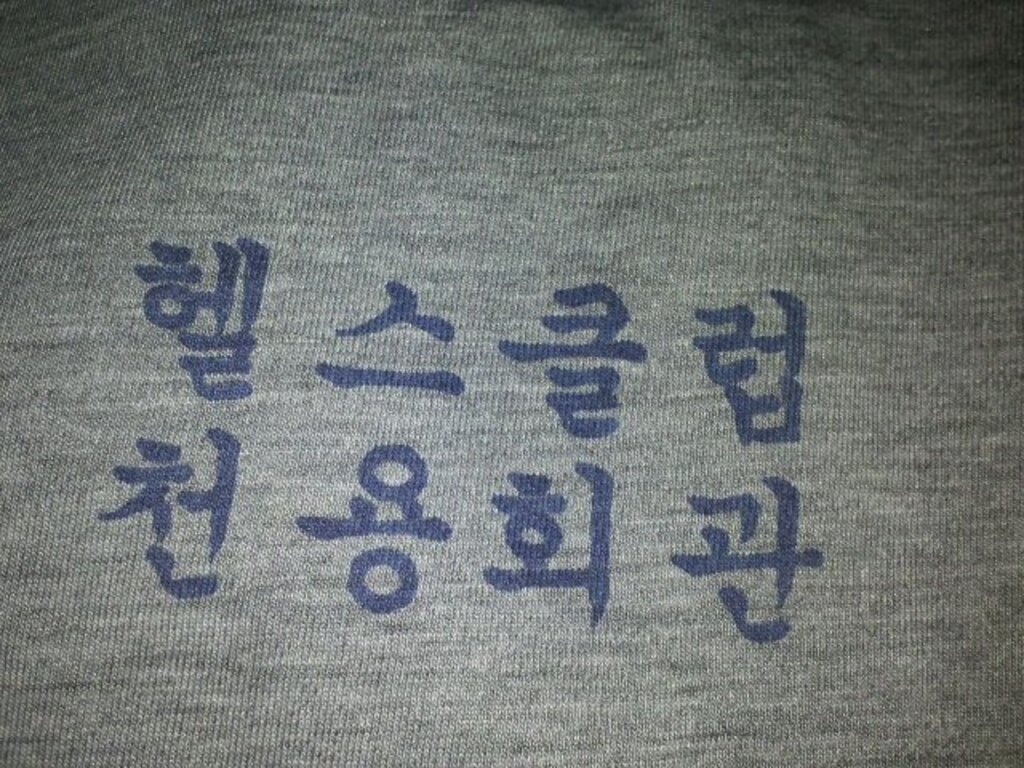 헬스클럽
천용회관